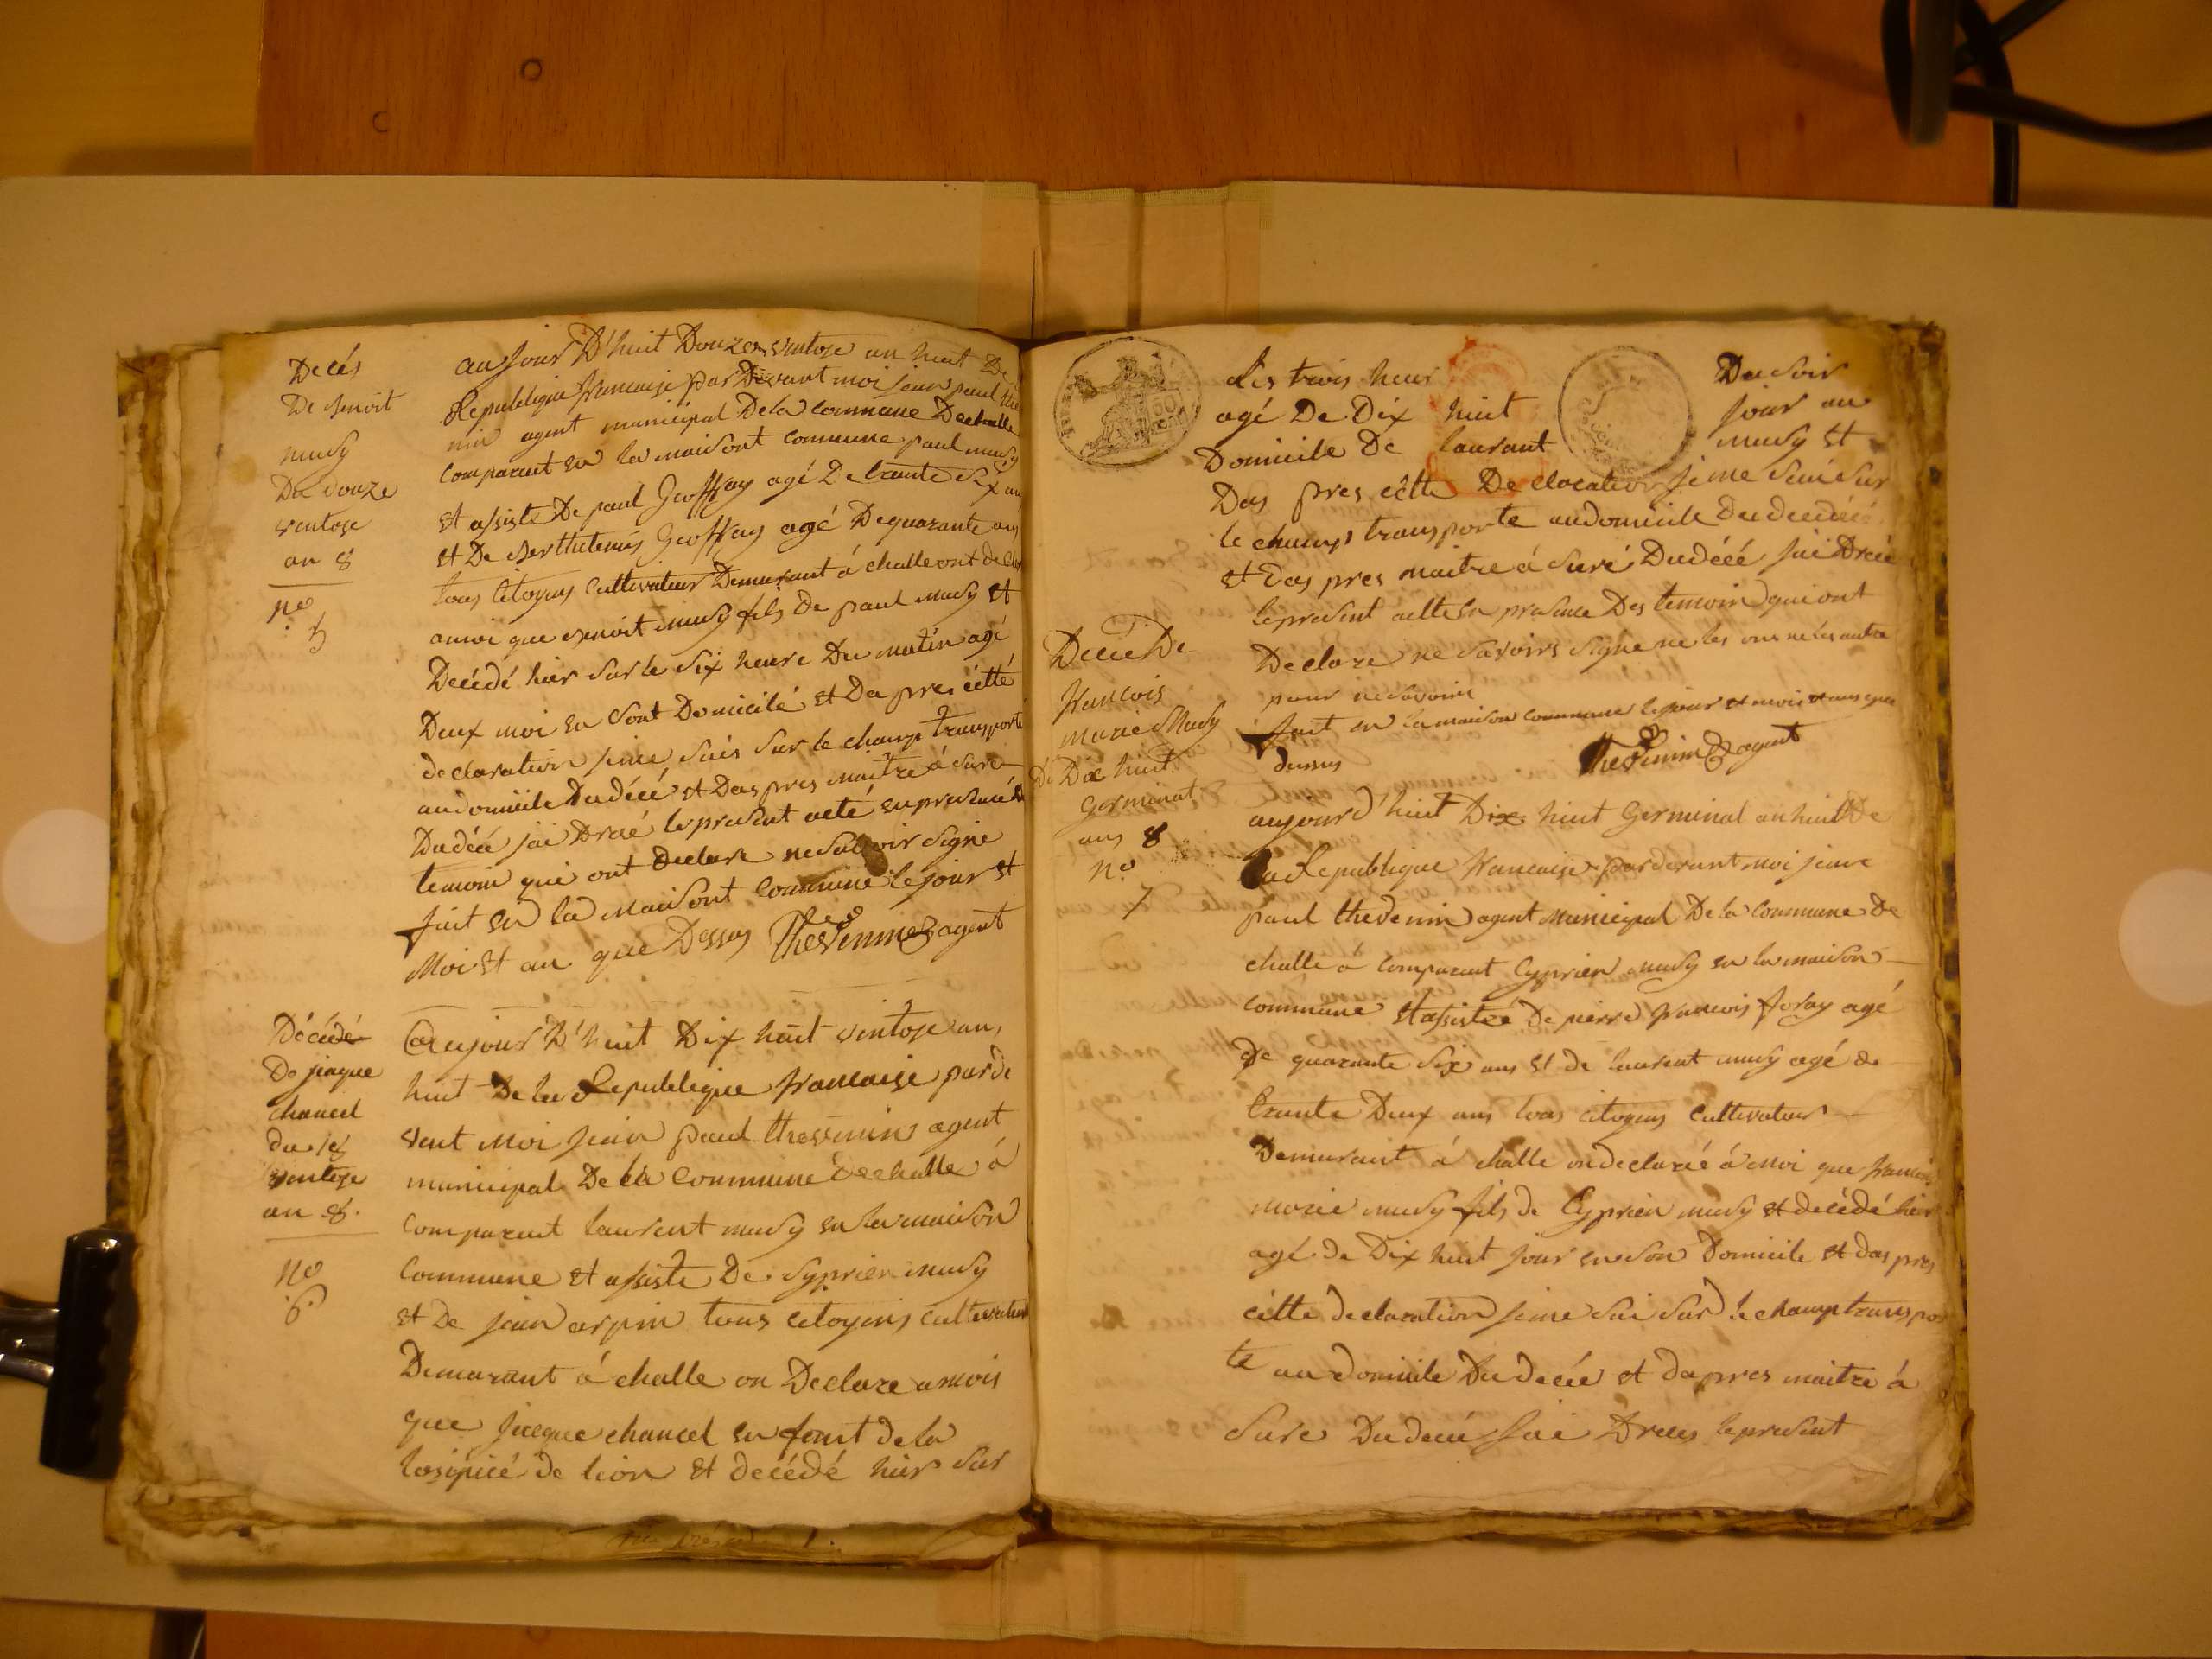 Décés
De Benoit
musy
Du douze
ventose
an 8
no
5
aujour D'huit Douze ventose an huit De
Republique francaise par Devant moi jean paul the
nin agent municipal De la commune De challe
comparent en la maisont commune paul musy
et assiste De paul Geoffray agé De trante Six an
et De Berthelemis Geoffray agé De quarante ans
tous Citoyens Cultivateur Demurant á challe ont decla
amoi que Benoit musy fils De paul musy et
Decédé hier Sur le Six heure Du matin agé
Deux moi en Sont Domicilé et Da pres cétté
declaration jeme Suis Sur le champ transporté
audomicile Dudécé et Das pres maitre á Sure
Dudécé jai Draé le present acté en presance
temoin qui ont declare ne Savoir Signe
fait en la maisont commune le jour et
Moi et an que Dessus Thevenin agent
Décédé
De jiaque
chancel
du 18
ventose
an 8.
no
6
aujour D'huit Dix huit ventose an,
huit De la Republique francaise parde
vent Moi jean paul thevenin agent
municipal De la commune De challe á
comparent laurent musy en la maison
commune et assiste De Syprien musy
et De jean arpin tous citoyens cultivateur
Demurant á challe on Declare amois
que jacque chancel en fant de la
losipicé de lion et decédé hier Sur
Les trois heur Du Soir
agé De Dix huit jour au
Domicile De laurant musy et
Das pres cétte Declaration jeme Suis Sur
le champs transporte audomicile du decédé
et das pres maitre á Suré Dudécé jai Dreé
le present acte en presance Des temoin qui ont
Declare ne Savoirs Signe ne les uns ne les autre
pour ne Savoir
fait en la maison commune le jour et mois et ans que
dessus Thevenin agent
Décé De
francois
marie Musy
Du Dix huit
germinal
ans 8
no
7
aujourd'huit Dix huit Germinal an huit De
La Republique francaise par devant moi jean
paul thevenin agent Municipal De la commune De
challe á comparent Cyprien musy en la maison
commune et assistee De pierre francois foray agé
de quarante Six ans et de laurent musy agé de
trante Deux ans tous citoyens cultivateur
Demurant á challe on declareé á moi que francoi
marie musy fils de Cyprien musy et decédé hier
agé de Dix huit jour en Son Domicile et das pres
cétte declaration jeme Sui Sur le champ transpor
te au domicile Du decée et da pres maitre á
Sure Dudecée jai Drees le present